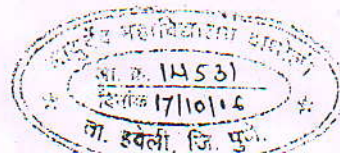 आयुर्वेद महाविद्यालय
क्र. 14531
दिनांक 17/10/16
ता. हवेली, जि. पुणे.